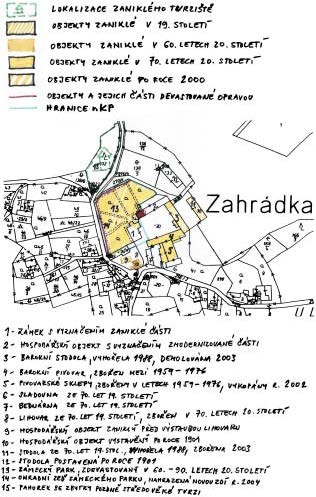 LOKALIZACE ZANIKLÉHO TVRZIŠTĚ
OBJEKTY ZANIKLÉ V 19. STOLETÍ
OBJEKTY ZANIKLÉ V 60. LETECH 20. STOLETÍ
OBJEKTY ZANIKLÉ V 70. LETECH 20. STOLETÍ
OBJEKTY ZANIKLÉ PO ROCE 2000
OBJEKTY A JEJICH ČÁSTI DEVASTOVANÉ OPRAVOU
HRANICE NKP
Zahrádka
1 - ZÁMEK S VYZNAČENÍM ZANIKLÉ ČÁSTI
2 - HOSPODÁŘSKÝ OBJEKT S VYZNAČENÍM ZMODERNIZOVANÉ ČÁSTI
3 - BAROKNÍ STODOLA, VYHOŘELA 1988, DEMOLOVÁNA 2003
4 - BAROKNÍ PIVOVAR, ZBOŘEN MEZI 1959 - 1976
5 - PIVOVARSKÉ SKLEPY, ZBOŘENY V LETECH 1959-1976, VYKOPÁNY R. 2002
6 - SLADOVNA ZE 70. LET 19. STOLETÍ
7 - BEDNÁRNA ZE 70. LET 19. STOLETÍ
8 - LIHOVAR ZE 70. LET 19. STOLETÍ, ZBOŘEN V 70. LETECH 20. STOLETÍ
9 - HOSPODÁŘSKÝ OBJEKT ZANIKLÝ PŘED VÝSTAVBOU LIHOVARU
10 - HOSPODÁŘSKÝ OBJEKT VYSTAVĚNÝ PO ROCE 1901
11 - STODOLA ZE 70. LET 19. STOL., VYHOŘELA 1988, ZBOŘENA 2003
12 - STODOLA POSTAVENÁ PO ROCE 1901
13 - ZÁMECKÝ PARK, ZDEVASTOVANÝ V 60. - 90. LETECH 20. STOLETÍ
14 - OHRADNÍ ZEĎ ZÁMECKÉHO PARKU, NAHRAZENÁ NOVOU ZDÍ R. 2004
15 - PAHOREK SE ZBYTKY POZDNĚ STŘEDOVĚKÉ TVRZI